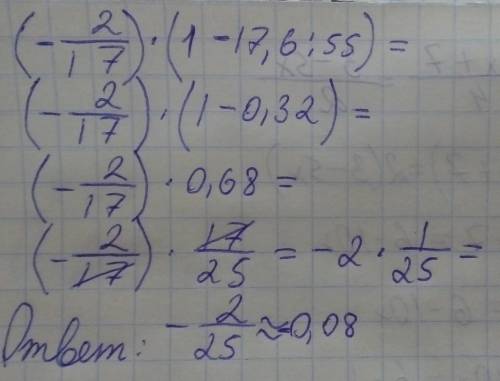 (-2/17) · (1 - 17,6 : 55) =
(-2/17) · (1 - 0,32) =
(-2/17) · 0,68 =
(-2/17) · 17/25 = -2 · 1/25 =
Ответ: -2/25 ≈ 0,08